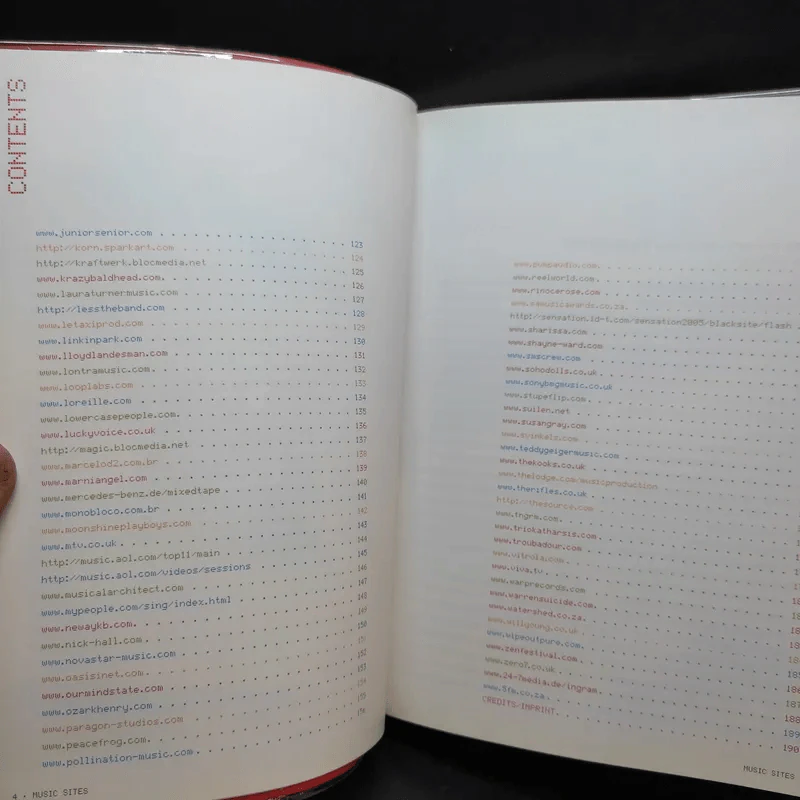 CONTENTS
www.juniorsenior.com 123
http://korn.sparkart.com 124
http://kraftwerk.blocmedia.net 125
www.krazybaldhead.com 126
www.lauraturnermusic.com 127
http://lesstheband.com 128
www.letaxiprod.com 129
www.linkinpark.com 130
www.lloydlandesman.com 131
www.lontramusic.com 132
www.looplabs.com 133
www.loreille.com 134
www.lowercasepeople.com 135
www.luckyvoice.co.uk 136
http://magic.blocmedia.net 137
www.marcelod2.com.br 138
www.marniangel.com 139
www.mercedes-benz.de/mixedtape 140
www.monobloco.com.br 141
www.moonshineplayboys.com 142
www.mtv.co.uk 143
http://music.aol.com/top11/main 144
http://music.aol.com/videos/sessions 145
www.musicalarchitect.com 146
www.mypeople.com/sing/index.html 147
www.newaykb.com 148
www.nick-hall.com 149
www.novastar-music.com 150
www.oasisinet.com
www.ourmindstate.com 152
www.ozarkhenry.com 153
www.paragon-studios.com 154
www.peacefrog.com
www.pollination-music.com
4 · MUSIC SITES
www.pumpaudio.com
www.reelworld.com
www.rinocerose.com
www.samusicawards.co.za
http://sensation.id-t.com/sensation2005/blacksite/flash
www.sharissa.com
www.shayne-ward.com
www.sixscrew.com
www.sohodolls.co.uk
www.sonybmgmusic.co.uk
www.stupeflip.com
www.suilen.net
www.susangray.com
www.svinkels.com
www.teddygeigermusic.com
www.thekooks.co.uk
www.thelodge.com/musicproduction
www.therifles.co.uk
http://thesource.com
www.fngrm.com
www.triokatharsis.com
www.troubadour.com
www.vitrola.com
www.viva.tv
www.warprecords.com
www.warrensuicide.com
www.watershed.co.za
www.willyoung.co.uk
www.wipeoutpure.com
www.zenfestival.com
www.zero7.co.uk
www.24-7media.de/ingram
www.5fm.co.za
CREDITS/IMPRINT 190
MUSIC SITES